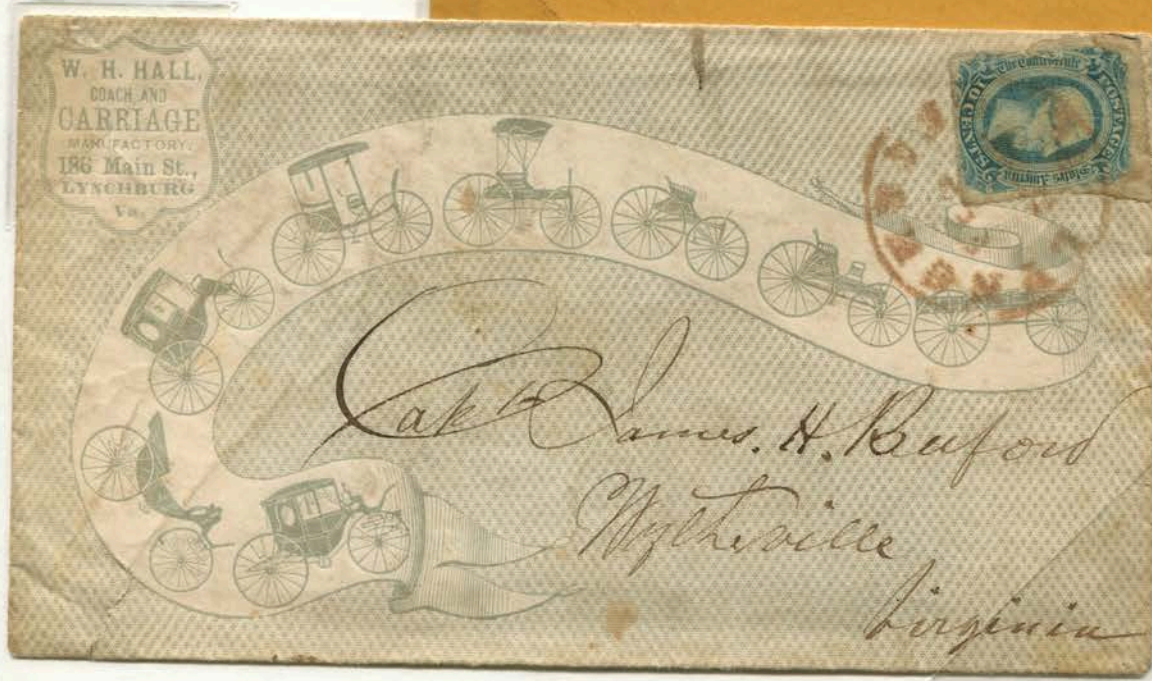 W. H. HALL,
COACH AND
CARRIAGE
MANUFACTORY.
186 Main St.,
LYNCHBURG
Va.
The Confederate
States America
POSTAGE
10 CENTS
Capt James. H. Buford
Wytheville
Virginia